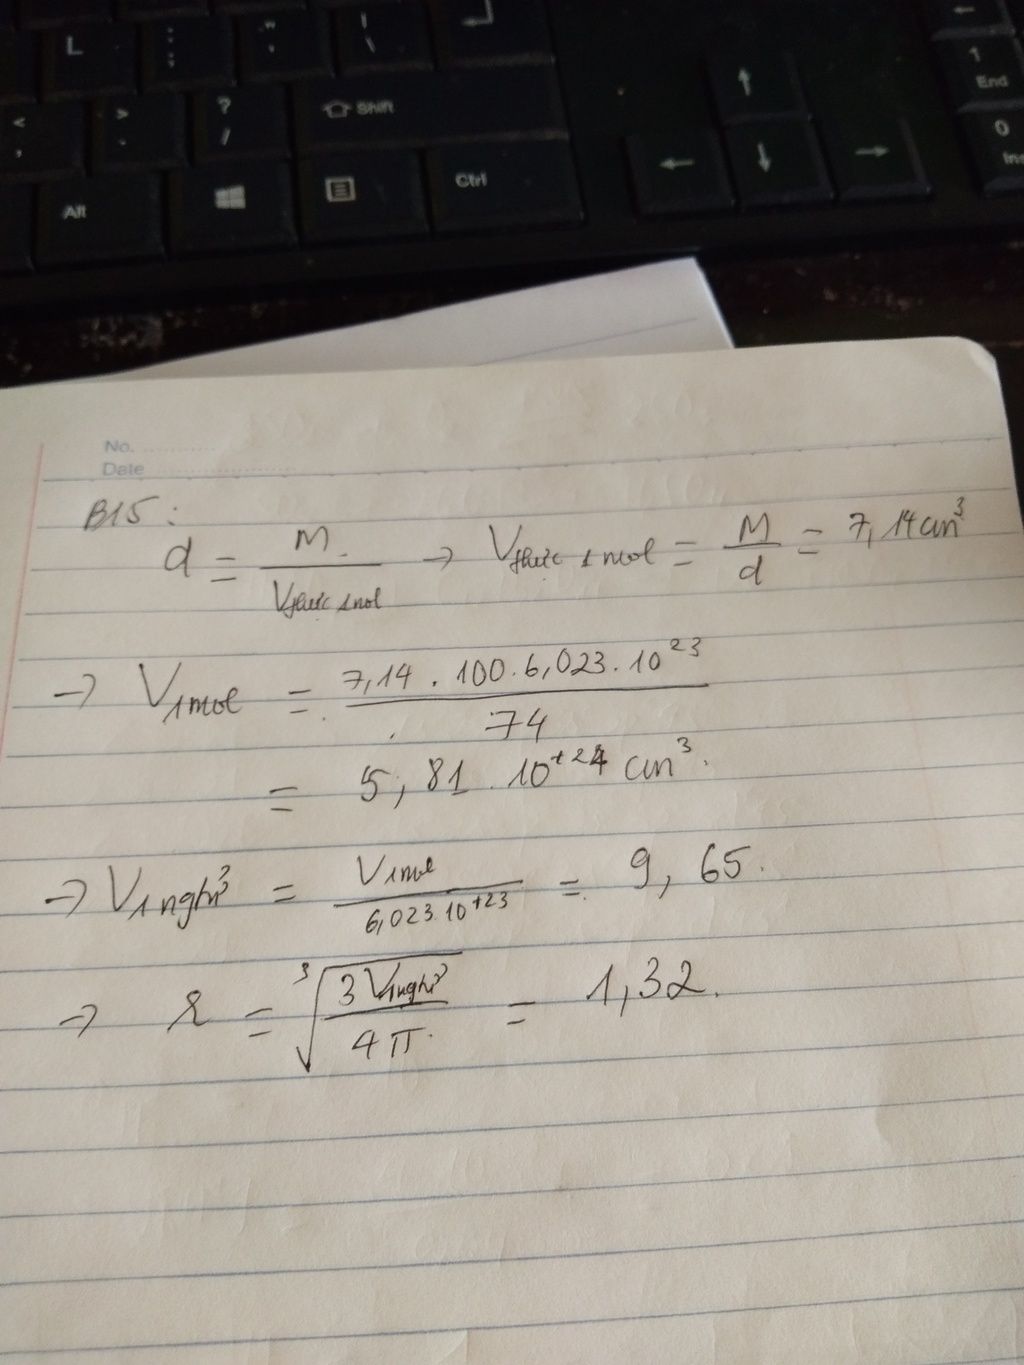 L
:
;
"
'
|
\
<
,
>
.
?
/
Shift
Alt
Ctrl
1
End
0
Ins
No.
Date
B15:
d = M / Vthực 1mol → Vthực 1mol = M / d = 7,14 cm³
→ V1mol = 7,14 . 100 . 6,023 . 10²³ / 74
= 5,81 . 10⁺²⁴ cm³.
→ V1ngtử = V1mol / 6,023.10⁺²³ = 9,65.
→ r = ³√(3V1ngtử / 4π) = 1,32.